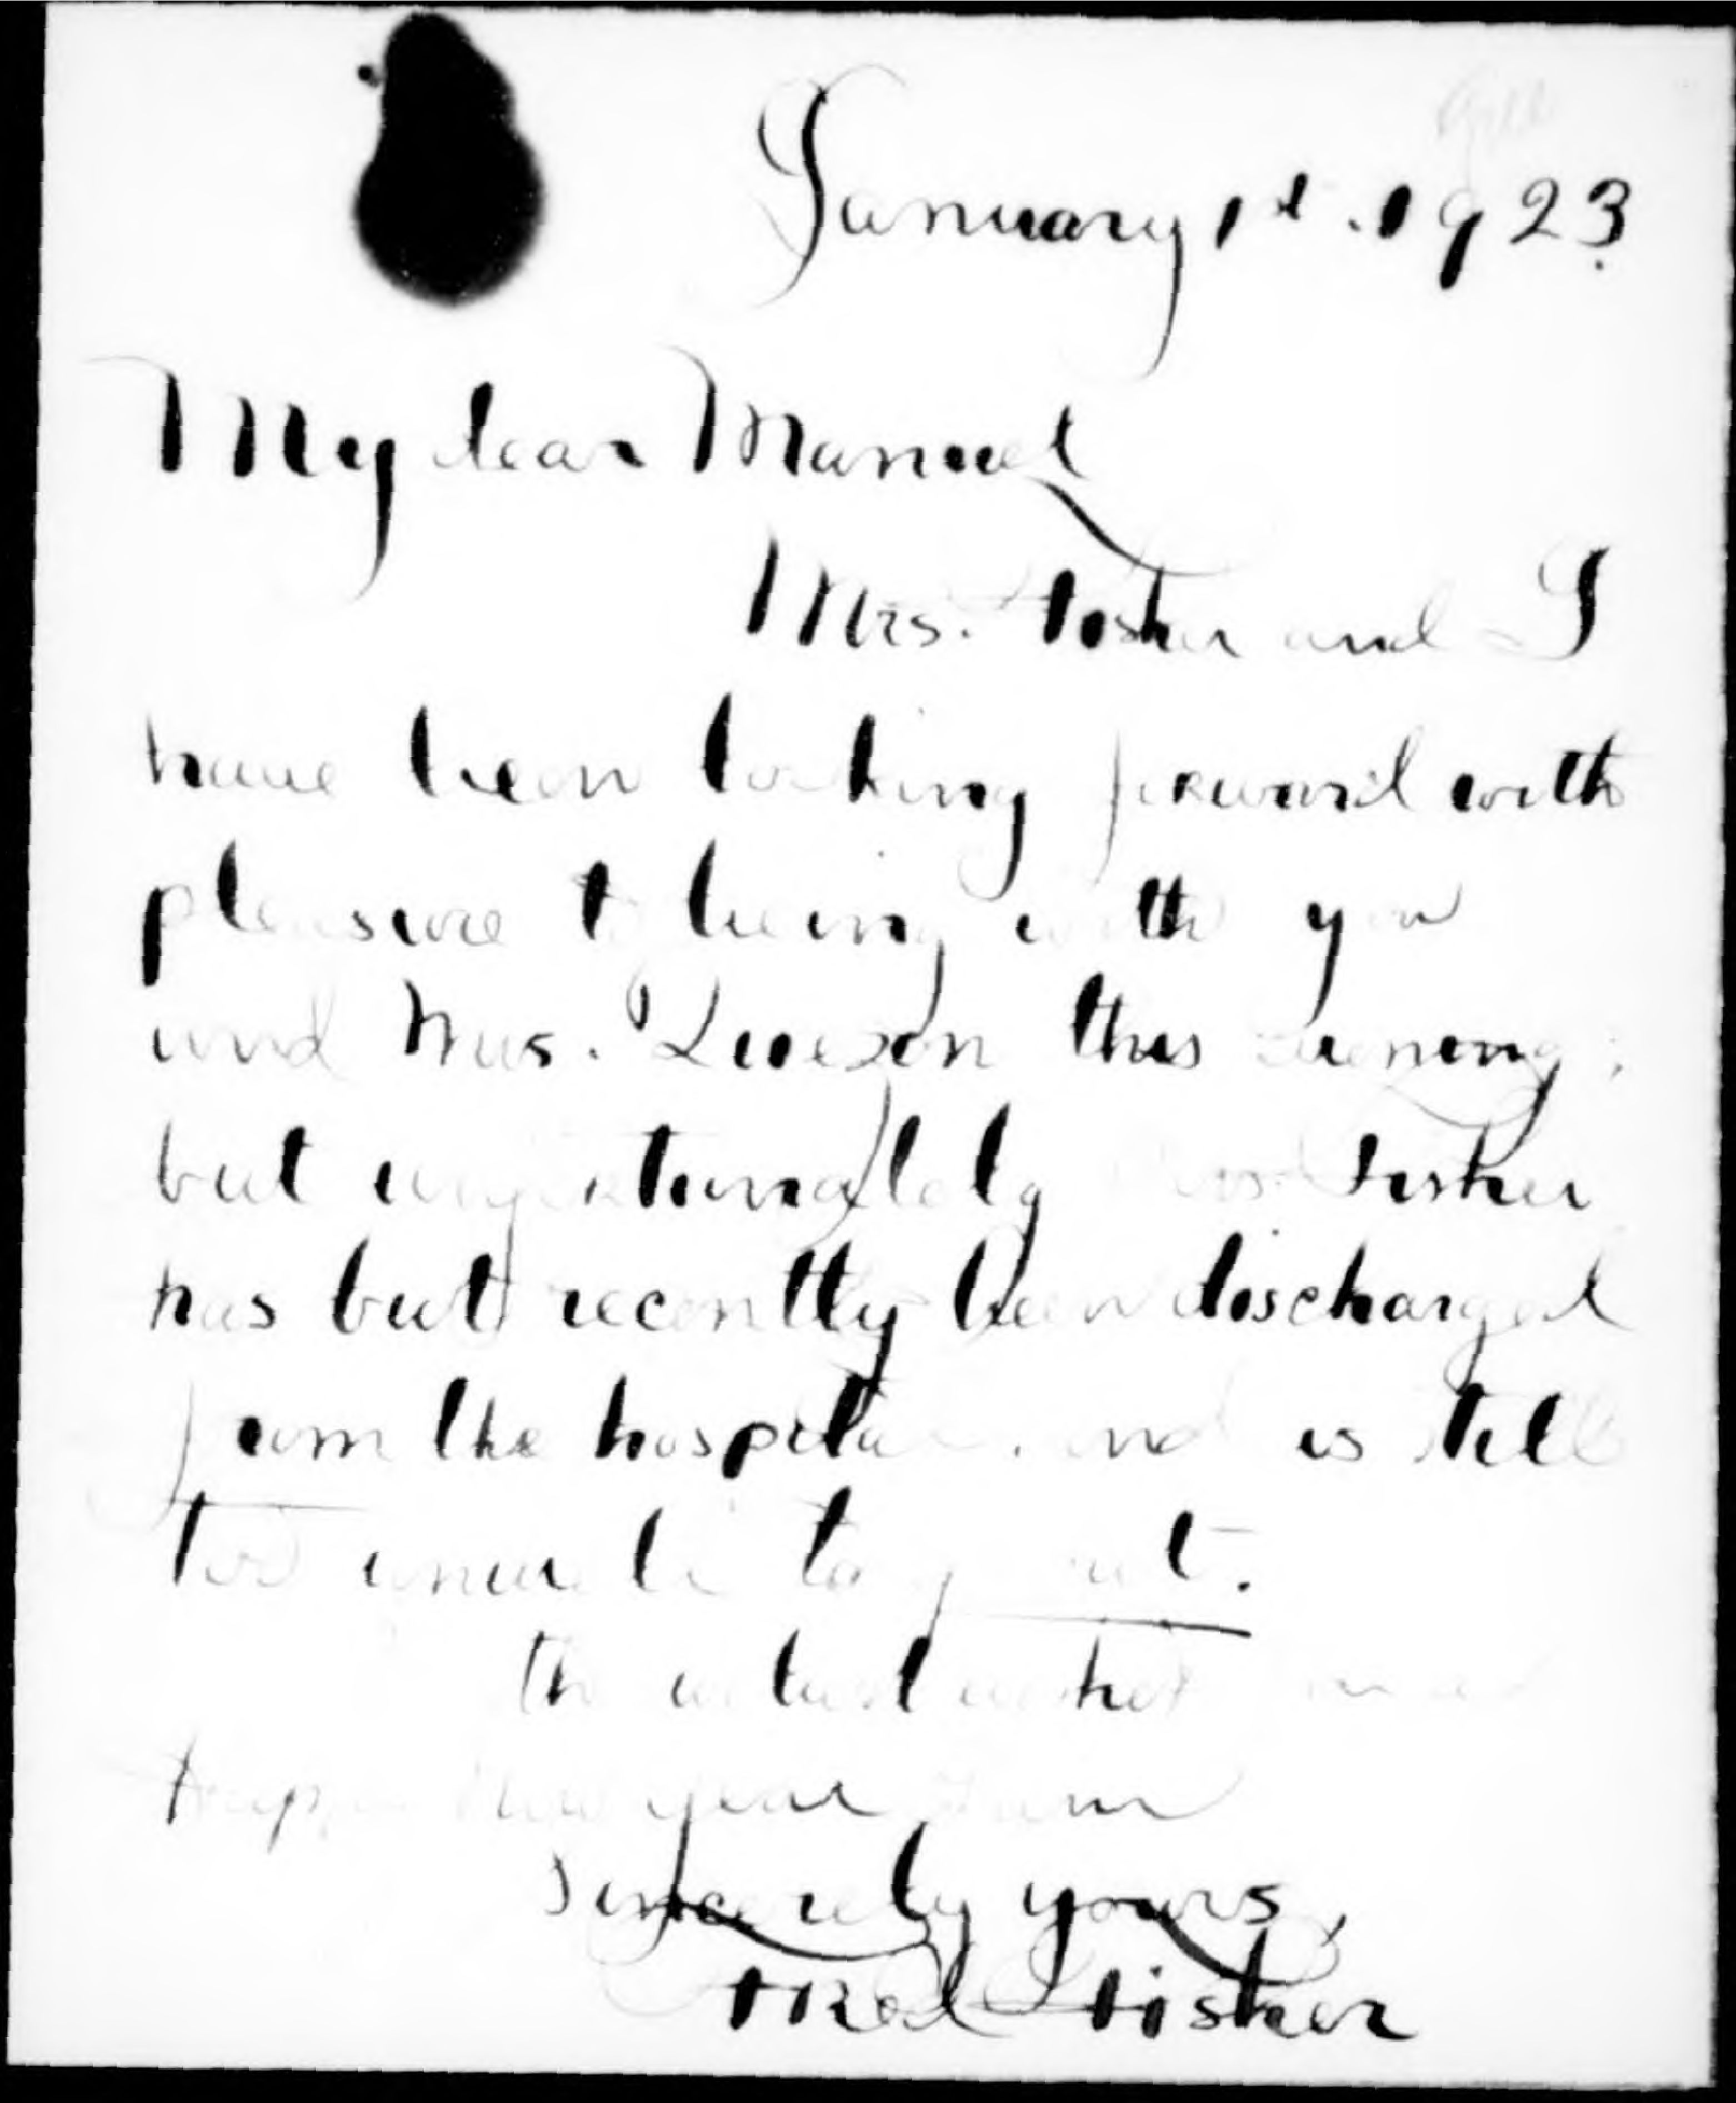 January 1st. 1923.
My dear Manuel
Mrs. Fisher and I
have been looking forward with
pleasure to being with you
and Mrs. Quezon this evening;
but unfortunately Mrs. Fisher
has but recently been discharged
from the hospital and is still
too unwell to go out.
With best wishes for a
Happy New Year I am
Sincerely yours,
Fred Fisher